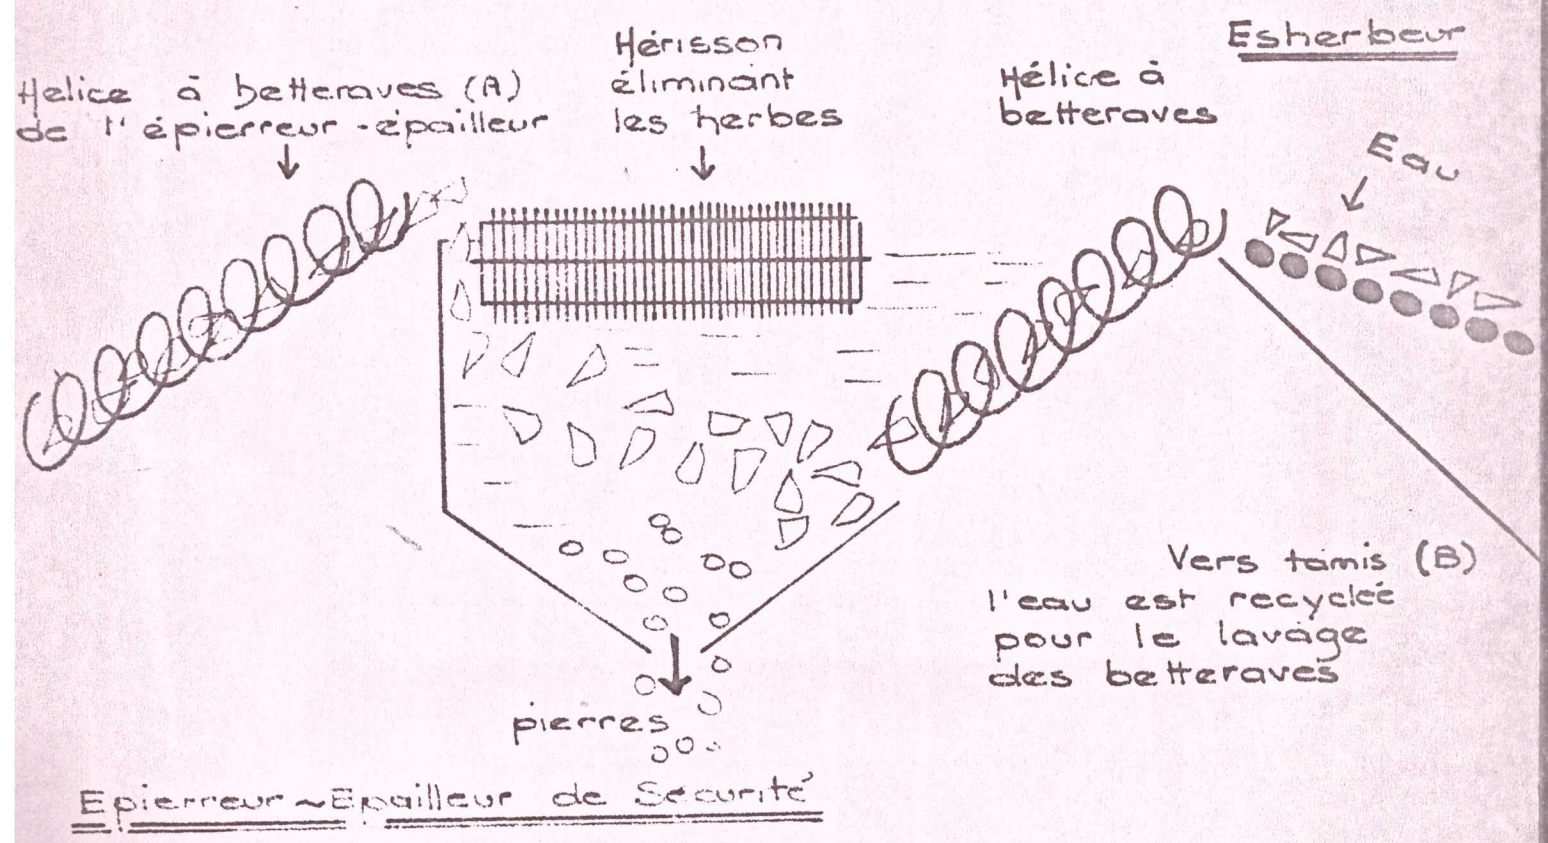 Helice à betteraves (A)
de l'épierreur-épailleur
Hérisson
éliminant
les herbes
Hélice à
betteraves
Esherbeur
Eau
Vers tamis (B)
l'eau est recyclée
pour le lavage
des betteraves
pierres
Epierreur ~ Epailleur de Sécurité